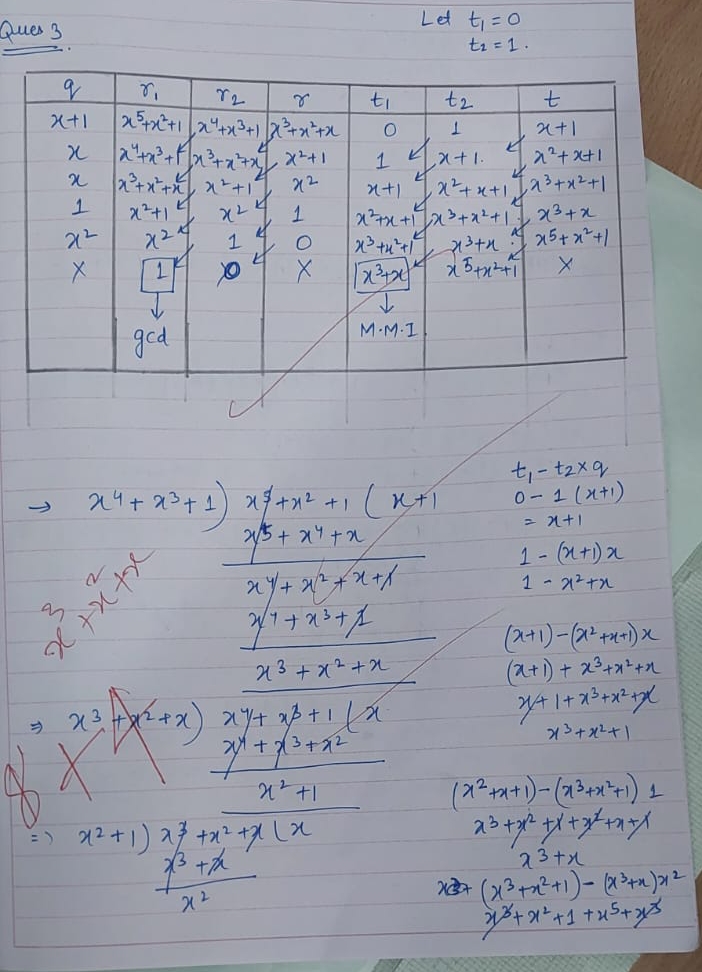 Ques 3
Let t₁ = 0
t₂ = 1.
q r₁ r₂ r t₁ t₂ t
x+1 x⁵+x²+1 x⁴+x³+1 x³+x²+x 0 1 x+1
x x⁴+x³+1 x³+x²+x x²+1 1 x+1. x²+x+1
x x³+x²+x x²+1 x² x+1 x²+x+1 x³+x²+1
1 x²+1 x² 1 x²+x+1 x³+x²+1 x³+x
x² x² 1 0 x³+x²+1 x³+x x⁵+x²+1
X 1 0 X x³+x x⁵+x²+1 X
gcd M.M.I
→ x⁴+x³+1) x⁵+x²+1 (x+1
x⁵+x⁴+x
x⁴+x²+x+1
x⁴+x³+1
x³+x²+x
x³+x²+x
⇒ x³+x²+x) x⁴+x³+1 (x
x⁴+x³+x²
x²+1
⇒ x²+1) x³+x²+x (x
x³+x
x²
t₁-t₂×q
0-1(x+1)
= x+1
1-(x+1)x
1-x²+x
(x+1)-(x²+x+1)x
(x+1)+x³+x²+x
x+1+x³+x²+x
x³+x²+1
(x²+x+1)-(x³+x²+1) 1
x³+x²+1+x²+x+1
x³+x
(x³+x²+1)-(x³+x)x²
x³+x²+1+x⁵+x³